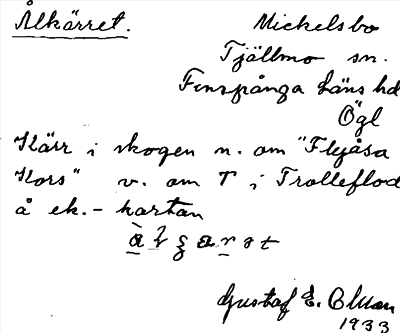 Ålkärret.
Mickelsbo
Tjällmo sn.
Finspånga läns hd
Ögl
Kärr i skogen n. om "Flyåsa
Kors" v. om T i Trolleflod
å ek. - kartan
Gustaf E. Olsson
1933